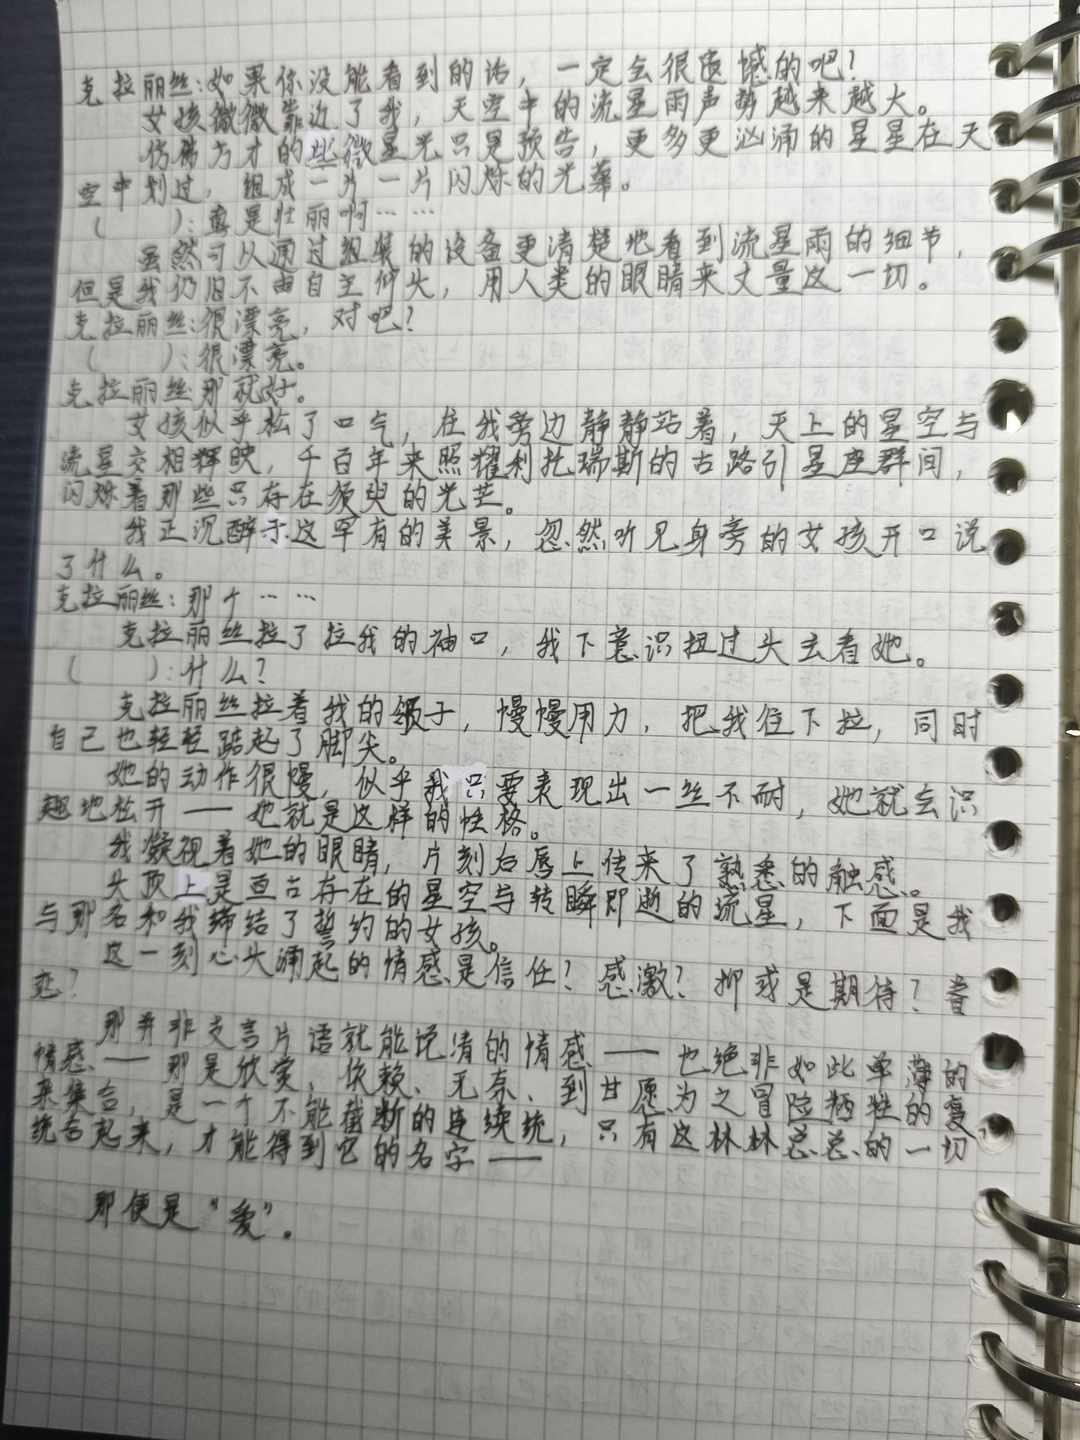 克拉丽丝:如果你没能看到的话，一定会很遗憾的吧？
女孩微微靠近了我，天空中的流星雨声势越来越大。
仿佛方才的些微星光只是预告，更多更汹涌的星星在天
空中划过，组成一片一片闪烁的光幕。
(　　):真是壮丽啊……
虽然可以通过组装的设备更清楚地看到流星雨的细节，
但是我仍旧不由自主仰头，用人类的眼睛来丈量这一切。
克拉丽丝:很漂亮，对吧？
(　　):很漂亮。
克拉丽丝:那就好。
女孩似乎松了口气，在我旁边静静站着，天上的星空与
流星交相辉映，千百年来照耀利托瑞斯的古路引星座群间，
闪烁着那些只存在须臾的光芒。
我正沉醉于这罕有的美景，忽然听见身旁的女孩开口说
了什么。
克拉丽丝:那个……
克拉丽丝拉了拉我的袖口，我下意识扭过头去看她。
(　　):什么？
克拉丽丝拉着我的领子，慢慢用力，把我往下拉，同时
自己也轻轻踮起了脚尖。
她的动作很慢，似乎我只要表现出一丝不耐，她就会识
趣地松开——她就是这样的性格。
我凝视着她的眼睛，片刻后唇上传来了熟悉的触感。
头顶上是亘古存在的星空与转瞬即逝的流星，下面是我
与那名和我缔结了誓约的女孩。
这一刻心头涌起的情感是信任？感激？抑或是期待？眷
恋？
那并非支言片语就能说清的情感——也绝非如此单薄的
情感——那是欣赏，依赖、无奈、到甘愿为之冒险牺牲的复
杂集合，是一个不能截断的连续统，只有这林林总总的一切
统合起来，才能得到它的名字——
那便是“爱”。